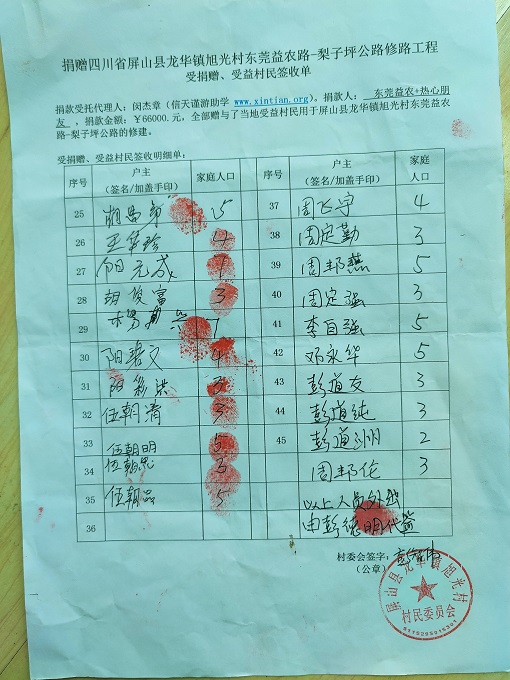 捐赠四川省屏山县龙华镇旭光村东莞益农路-梨子坪公路修路工程
受捐赠、受益村民签收单
捐款受托代理人：闵杰章（信天谨游助学 www.xintian.org)。捐款人： 东莞益农+热心朋
友 ，捐款金额：￥66000.元，全部赠与了当地受益村民用于屏山县龙华镇旭光村东莞益农
路-梨子坪公路的修建。
受捐赠、受益村民签收明细单：
序号 户主（签名/加盖手印） 家庭人口 序号 户主（签名/加盖手印） 家庭人口
25 5 37 周飞宇 4
26 王华珍 4 38 周定勤 3
27 阳元成 1 39 周邦燕 5
28 胡俊富 3 40 周定强 3
29 1 41 李自强 5
30 阳君文 4 42 邓永华 5
31 3 43 彭道友 3
32 伍朝清 3 44 彭道纯 3
33 伍朝明 5 45 彭道洲 2
34 伍朝 3 周邦伦 3
35 伍朝品 5 以上人员外出
36 由彭德明代签
村委会签字：
（公章）
屏山县龙华镇旭光村
村民委员会